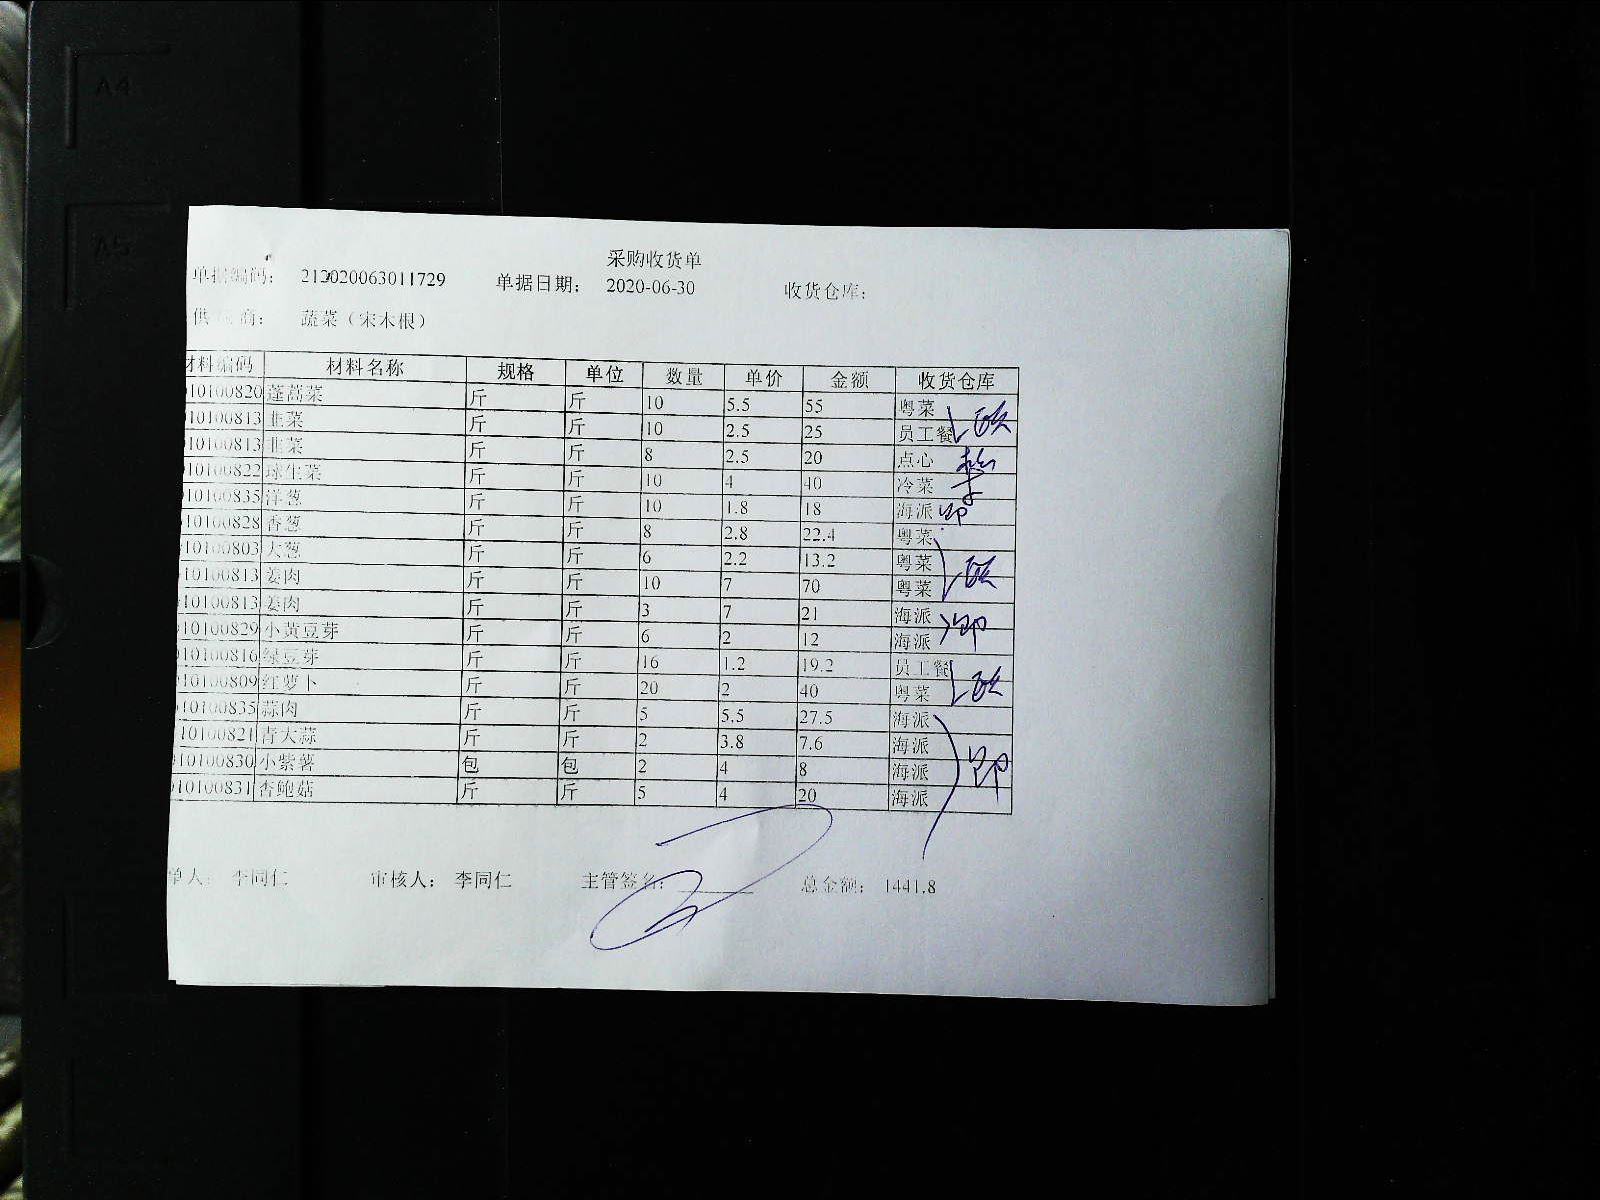 A4
A5
采购收货单
单据编码： 212020063011729 单据日期： 2020-06-30 收货仓库：
供 商： 蔬菜（宋木根）
材料编码 材料名称 规格 单位 数量 单价 金额 收货仓库
10100820 蓬蒿菜 斤 斤 10 5.5 55 粤菜
10100813 韭菜 斤 斤 10 2.5 25 员工餐
10100813 韭菜 斤 斤 8 2.5 20 点心
10100822 球生菜 斤 斤 10 4 40 冷菜
10100835 洋葱 斤 斤 10 1.8 18 海派
10100828 香葱 斤 斤 8 2.8 22.4 粤菜
10100803 大葱 斤 斤 6 2.2 13.2 粤菜
10100813 姜肉 斤 斤 10 7 70 粤菜
10100813 姜肉 斤 斤 3 7 21 海派
10100829 小黄豆芽 斤 斤 6 2 12 海派
10100816 绿豆芽 斤 斤 16 1.2 19.2 员工餐
10100809 红萝卜 斤 斤 20 2 40 粤菜
10100835 蒜肉 斤 斤 5 5.5 27.5 海派
10100821 青大蒜 斤 斤 2 3.8 7.6 海派
10100830 小紫薯 包 包 2 4 8 海派
10100831 杏鲍菇 斤 斤 5 4 20 海派
单人： 李同仁 审核人： 李同仁 主管签名： 总金额： 1441.8